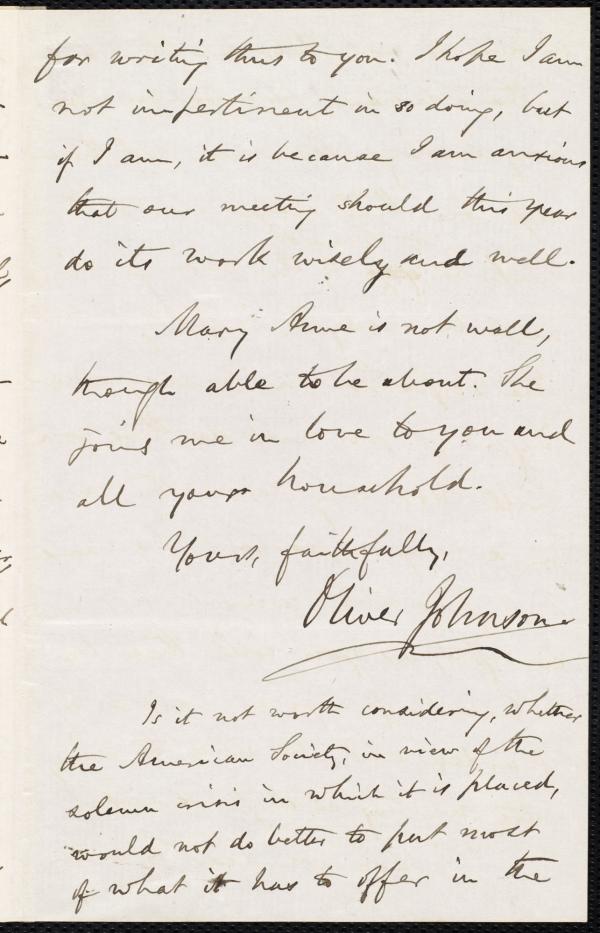 for writing thus to you. I hope I am
not impertinent in so doing, but
if I am, it is because I am anxious
that our meeting should this year
do its work wisely and well.
Mary Anne is not well,
though able to be about. She
joins me in love to you and
all your household.
Yours, faithfully,
Oliver Johnson
Is it not worth considering, whether
the American Society, in view of the
solemn crisis in which it is placed,
would not do better to put most
of what it has to offer in the